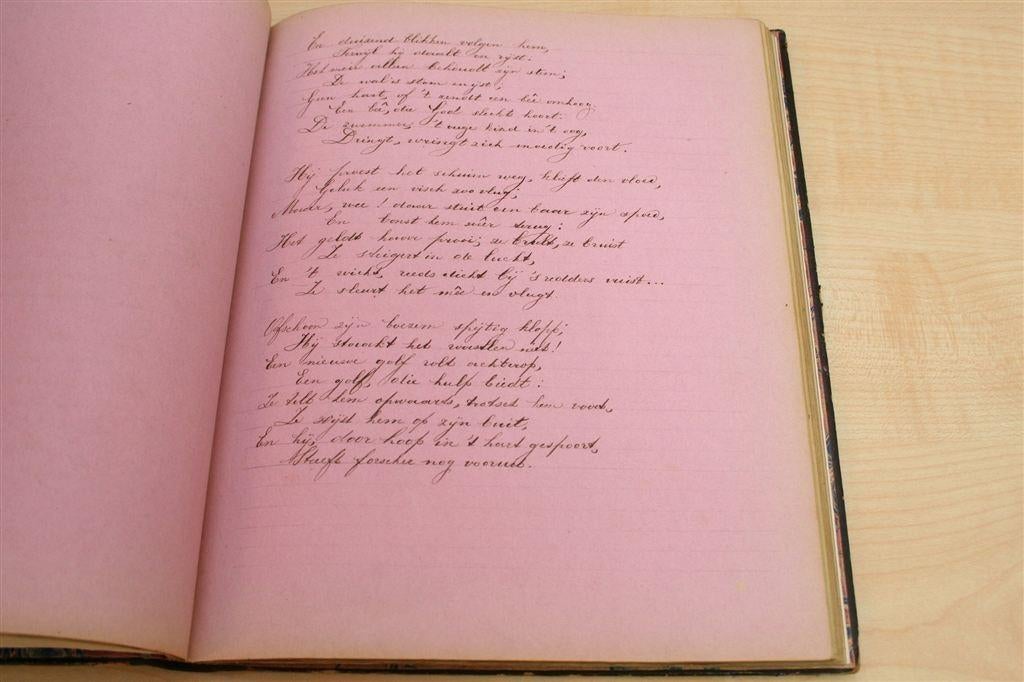 En duizend blikken volgen hem,
Terwijl hij daalt en rijst.
Het meir alleen behoudt zijn stem;
De wal is stom en ijst,
Geen hart, of 't zendt een bêe omhoog,
Een bêe, die God slechts hoort.
De zwemmer, 't enge kind in 't oog,
Dringt, wringt zich moedig voort.
Hij proest het schuim weg, klieft den vloed,
Gelijk een visch zoo vlug;
Maar, wee! daar stuit een baar zijn spoed,
En bonst hem wêer terug:
Het geldt haare prooi; ze brult, ze bruist
Ze steigert in de lucht,
En 't wicht, reeds dicht bij 's redders vuist...
Ze sleurt het mêe en vlugt.
Ofschoon zijn boezem spijtig klopp;
Hij staakt het worstlen niet!
Een nieuwe golf rolt achterop,
Een golf, die hulp biedt:
Ze tilt hem opwaards, trotset hem voort,
Ze wijst hem op zijn buit,
En hij, door hoop in 't hart gespoort,
Streeft forscher nog vooruit.